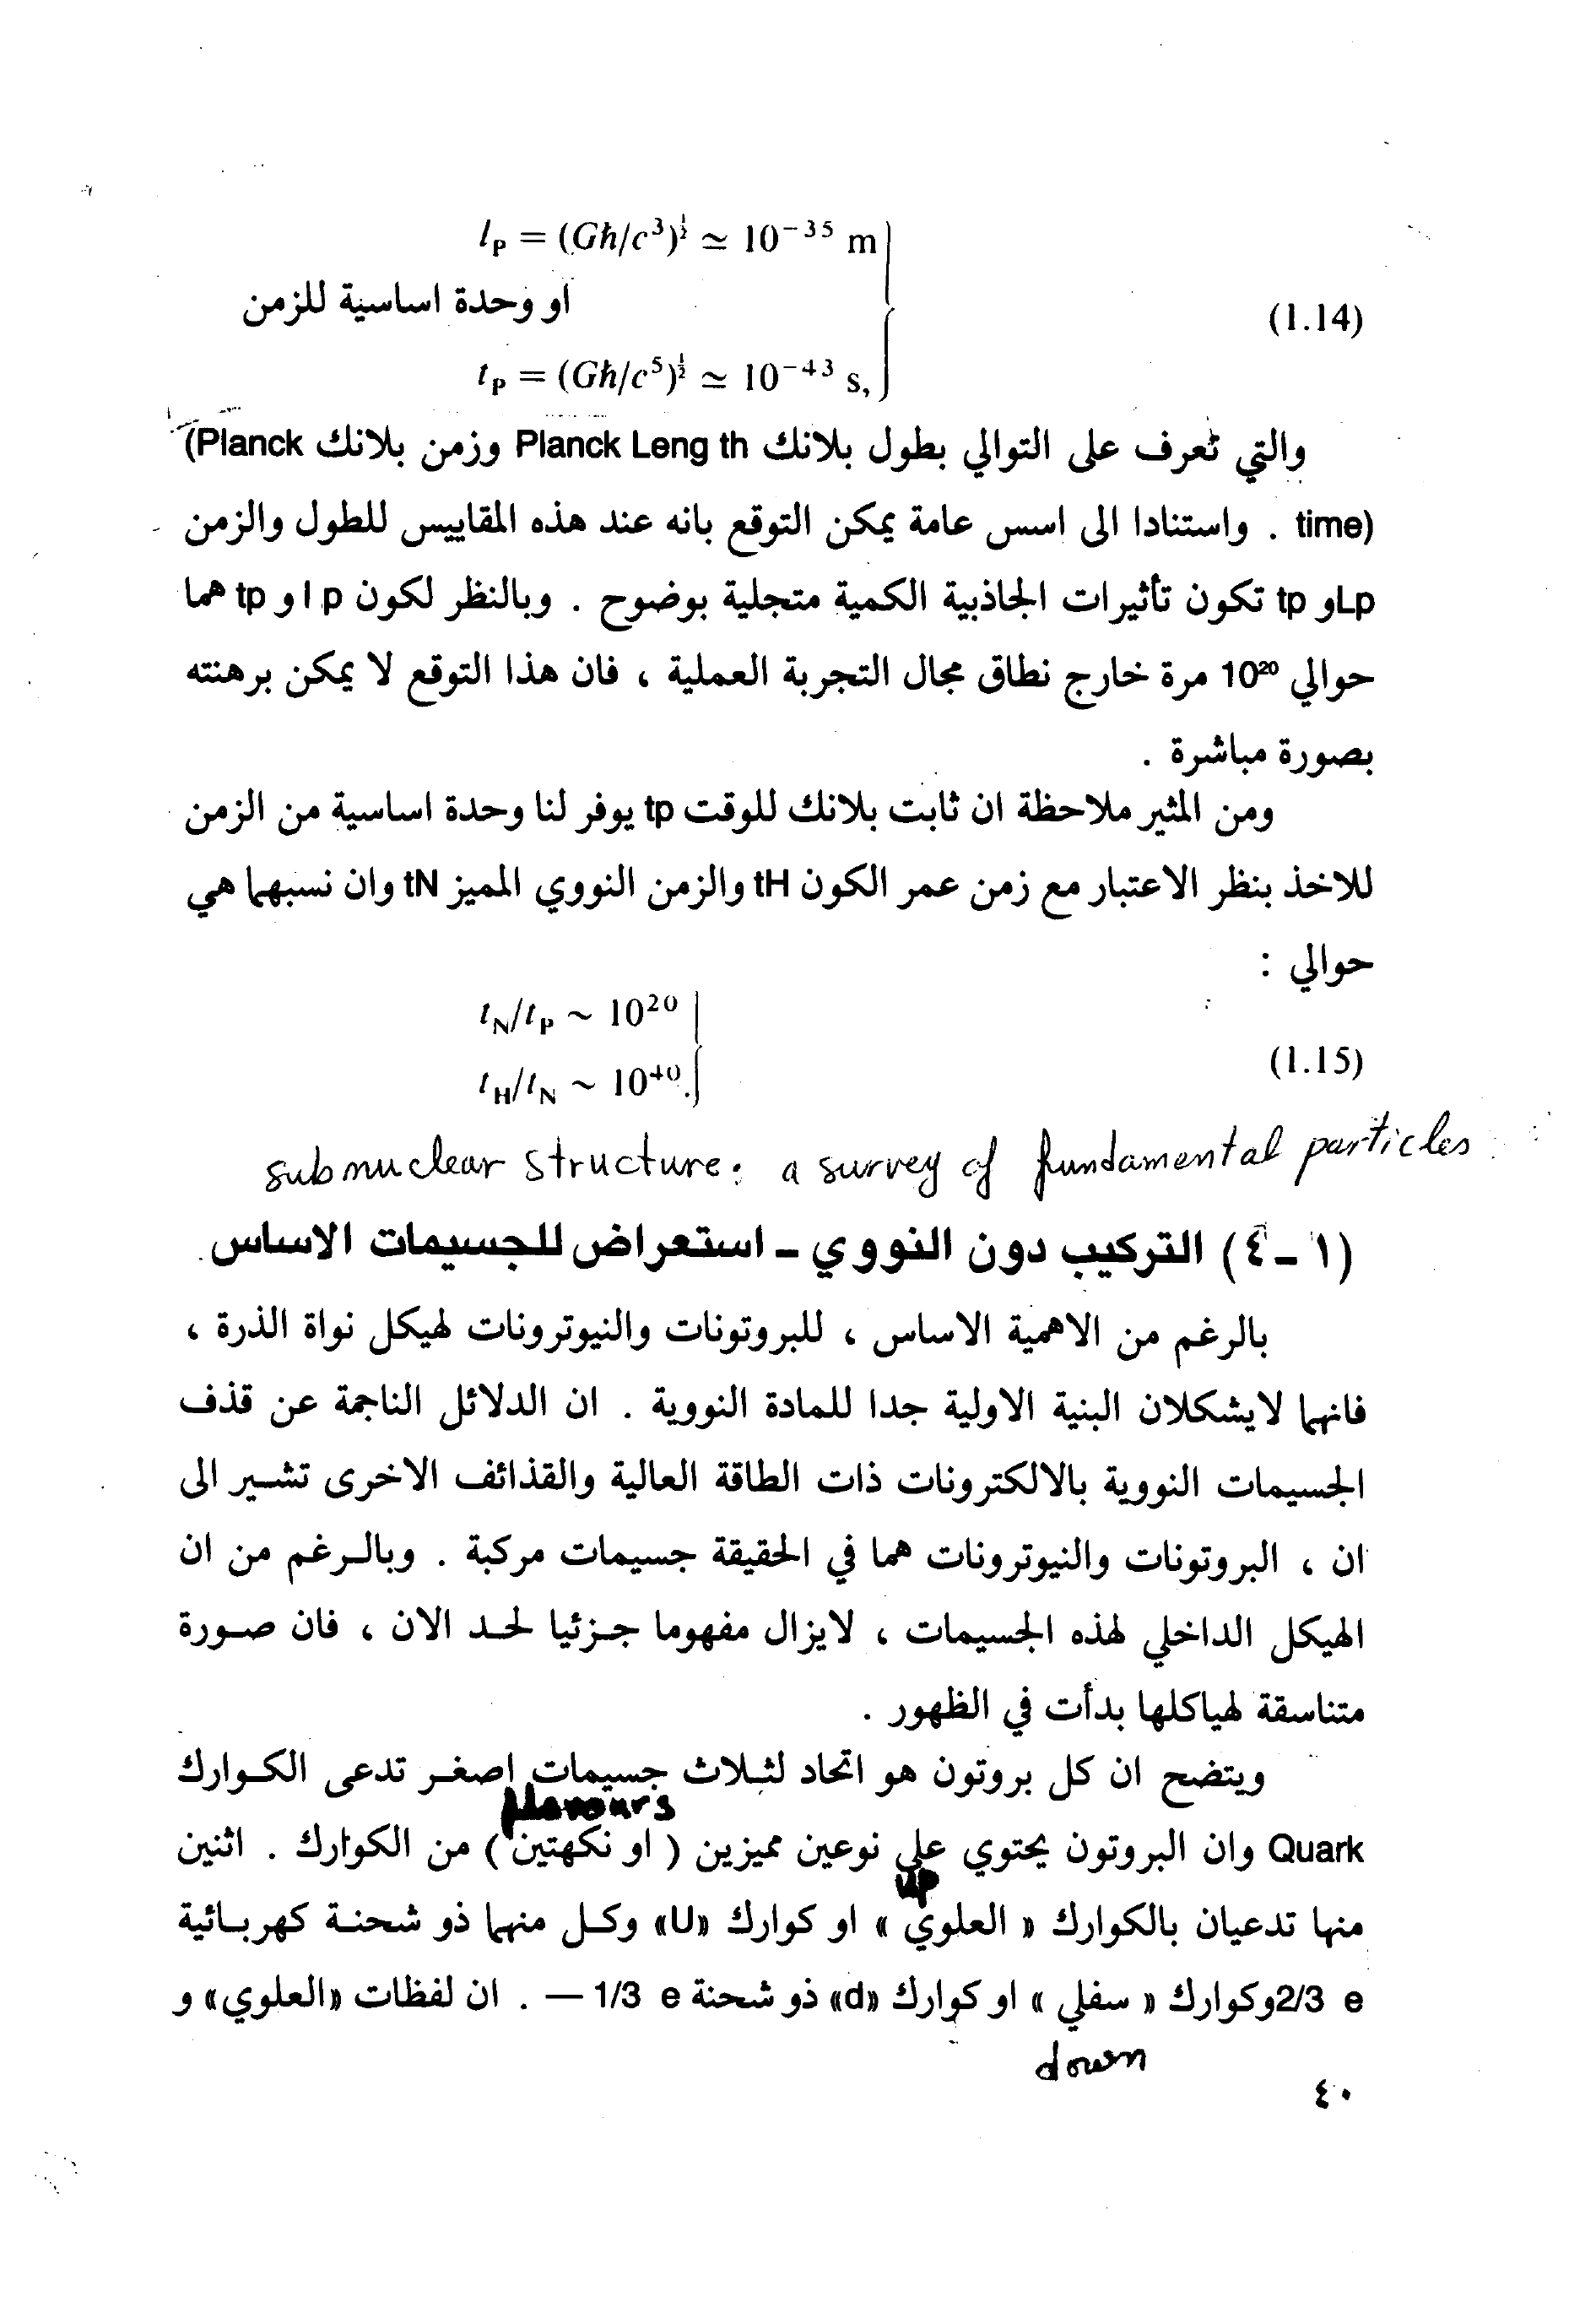 l_P = (Għ/c³)^½ ≃ 10⁻³⁵ m
او وحدة اساسية للزمن
(1.14)
t_P = (Għ/c⁵)^½ ≃ 10⁻⁴³ s,
والتي تُعرف على التوالي بطول بلانك Planck Leng th وزمن بلانك (Planck
time) . واستنادا الى اسس عامة يمكن التوقع بانه عند هذه المقاييس للطول والزمن
Lp و tp تكون تأثيرات الجاذبية الكمية متجلية بوضوح . وبالنظر لكون l p و tp هما
حوالي 10²⁰ مرة خارج نطاق مجال التجربة العملية ، فان هذا التوقع لا يمكن برهنته
بصورة مباشرة .
ومن المثير ملاحظة ان ثابت بلانك للوقت tp يوفر لنا وحدة اساسية من الزمن
للاخذ بنظر الاعتبار مع زمن عمر الكون tH والزمن النووي المميز tN وان نسبهما هي
حوالي :
t_N/t_P ~ 10²⁰
(1.15)
t_H/t_N ~ 10⁴⁰.
subnuclear structure: a survey of fundamental particles
(١ - ٤) التركيب دون النووي - استعراض للجسيمات الاساس
بالرغم من الاهمية الاساس ، للبروتونات والنيوترونات لهيكل نواة الذرة ،
فانهما لايشكلان البنية الاولية جدا للمادة النووية . ان الدلائل الناجمة عن قذف
الجسيمات النووية بالالكترونات ذات الطاقة العالية والقذائف الاخرى تشير الى
ان ، البروتونات والنيوترونات هما في الحقيقة جسيمات مركبة . وبالرغم من ان
الهيكل الداخلي لهذه الجسيمات ، لايزال مفهوما جزئيا لحد الان ، فان صورة
متناسقة لهياكلها بدأت في الظهور .
ويتضح ان كل بروتون هو اتحاد لثلاث جسيمات اصغر تدعى الكوارك
flavours
Quark وان البروتون يحتوي على نوعين مميزين ( او نكهتين ) من الكوارك . اثنين
up
منها تدعيان بالكوارك « العلوي » او كوارك «U» وكل منهما ذو شحنة كهربائية
2/3 e وكوارك « سفلي » او كوارك «d» ذو شحنة 1/3 e — . ان لفظات «العلوي» و
down
٤٠